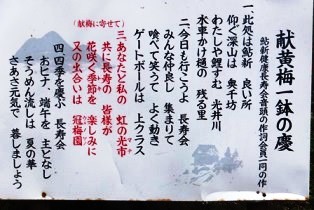 献黄梅一鉢の慶
鮎新健康長寿会音頭の作詞会員一同の作
一、此処は鮎新 良い所
仰ぐ深山は 奥千坊
わたしや鯉すむ 光井川
水車かけ樋の 残る里
二、今日も行こうよ 長寿会
みんな仲良し 集まりて
喰べて笑って よく動き
ゲートボールは 上クラス
(献梅に寄せて)
三、あなたと私の 虹の光市
共に長寿の 皆様が
花咲く季節を 楽しみに
又の出合いは 冠梅園
四、四季を慶ぶ 長寿会
おヒナ、端午を 主となし
そうめん流しは 夏の華
さあさ元気で 暮しましょう